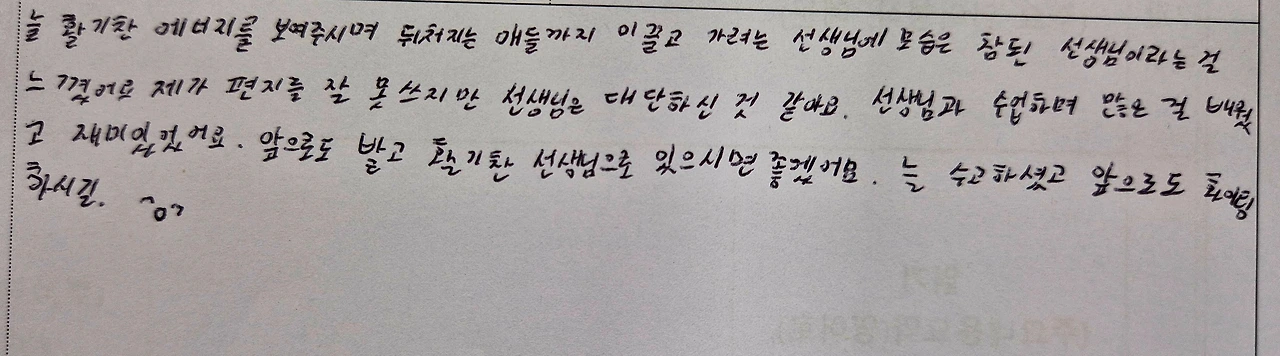 늘 활기찬 에너지를 보여주시며 뒤처지는 애들까지 이끌고 가려는 선생님에 모습은 참된 선생님이라는 걸
느꼈어요 제가 편지를 잘 못 쓰지만 선생님은 대단하신 것 같아요. 선생님과 수업하며 많은 걸 배웠
고 재미있었어요. 앞으로도 밝고 활기찬 선생님으로 있으시면 좋겠어요. 늘 수고하셨고 앞으로도 화이팅
하시길. ^o^